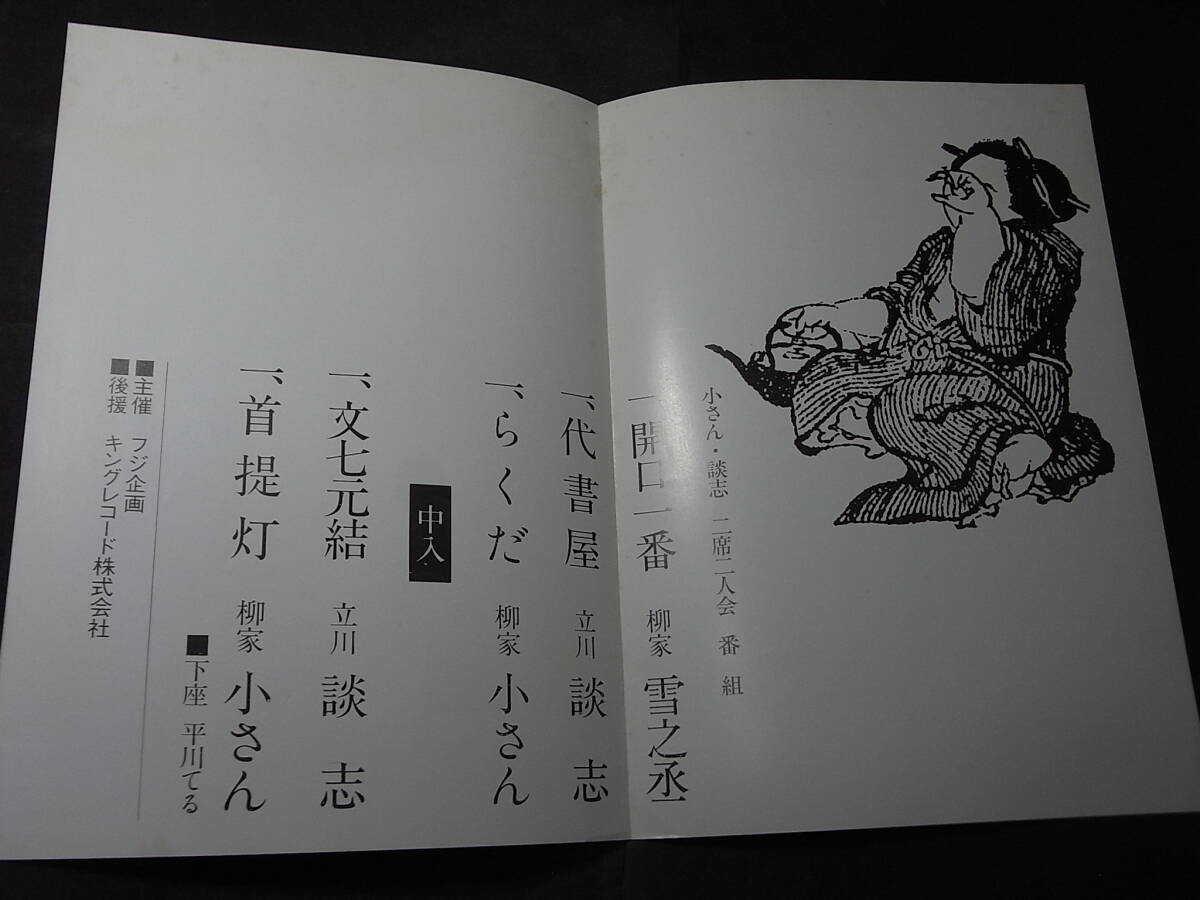 小さん・談志 二席二人会 番組
一、開口一番 柳家 雪之丞
一、代書屋 立川 談志
一、らくだ 柳家 小さん
中入
一、文七元結 立川 談志
一、首提灯 柳家 小さん
■下座 平川てる
■主催 フジ企画
■後援 キングレコード株式会社